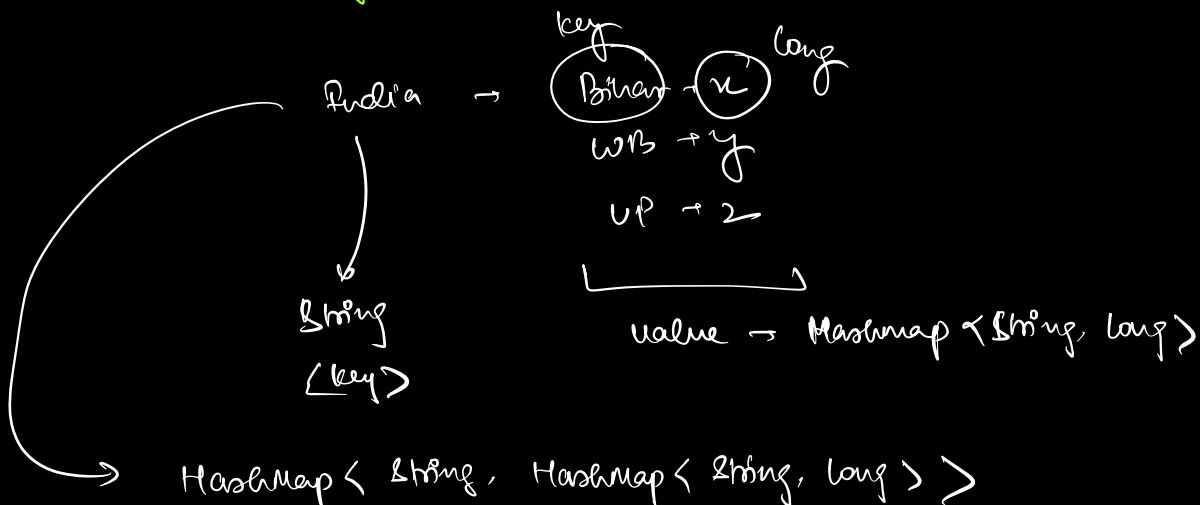 key long
India → Bihar → x
WB → y
UP → z
String
<key>
value → Hashmap <String, long>
HashMap < String, HashMap < String, long > >